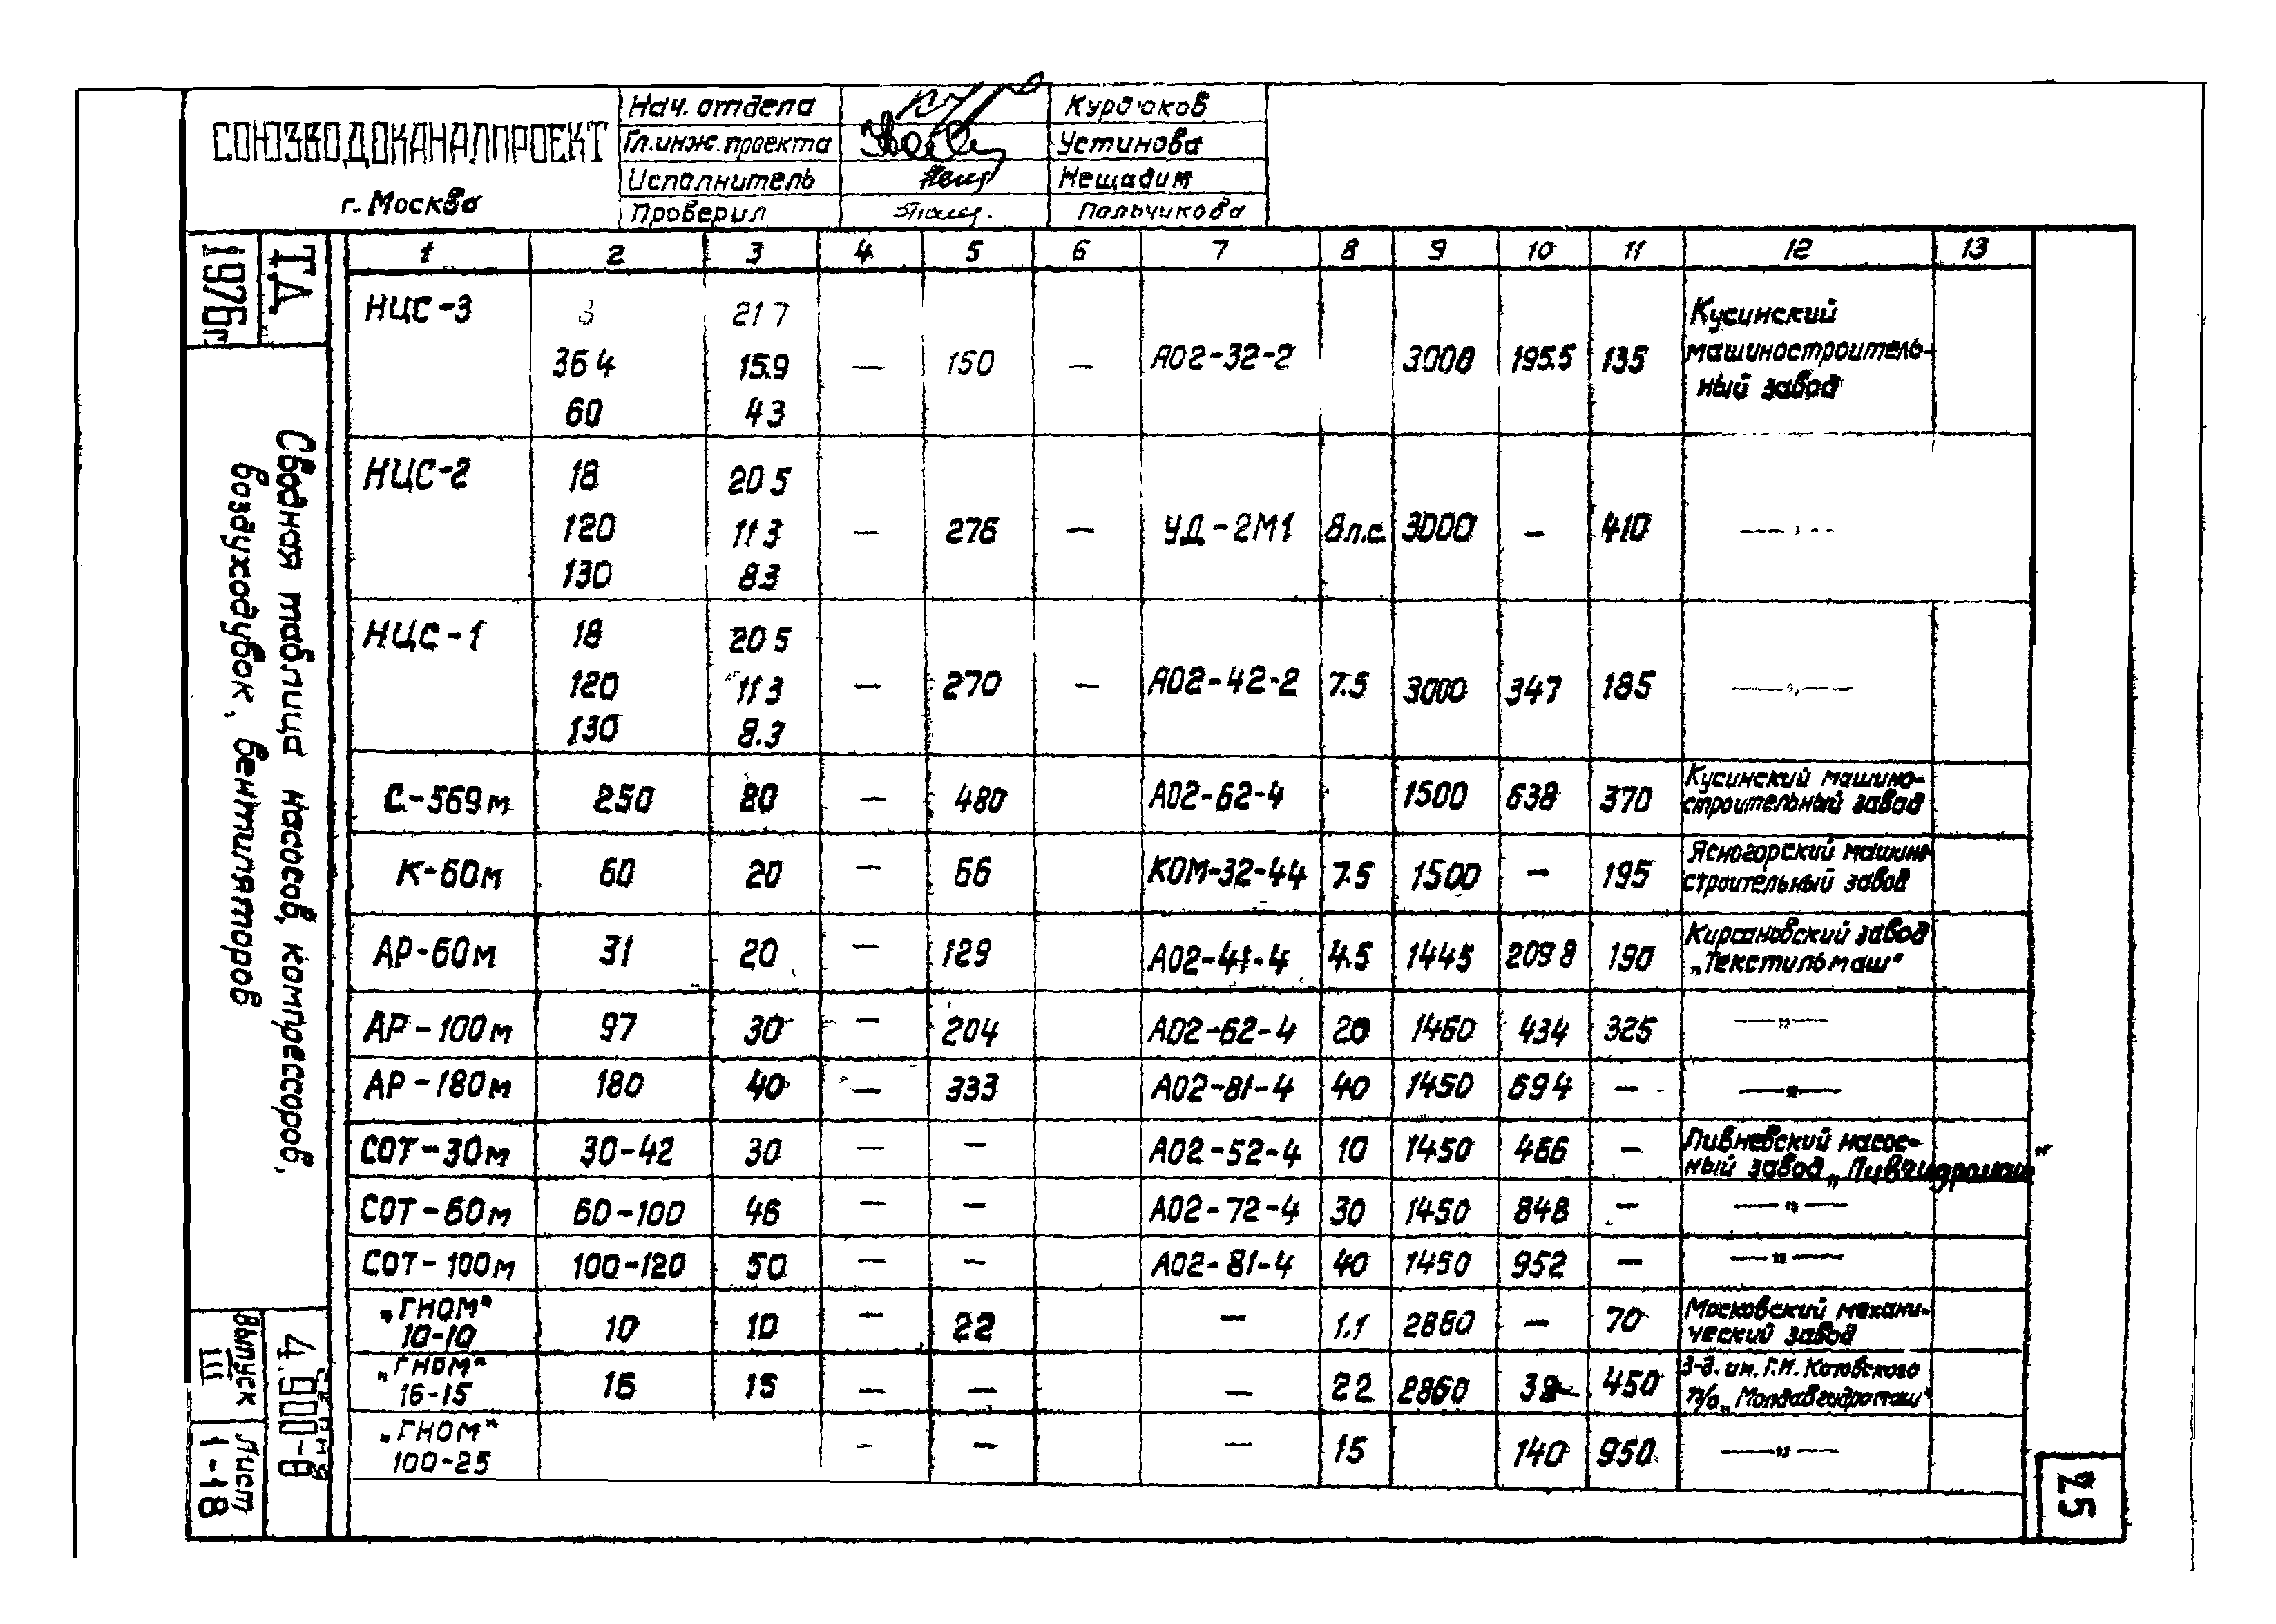 СОЮЗВОДОКАНАЛПРОЕКТ
г. Москва
Нач. отдела Курдюков
Гл. инж. проекта Устинова
Исполнитель Нещадим
Проверил Пальчикова
Т.Д.
1976г
Сводная таблица насосов, компрессоров,
воздуходувок, вентиляторов
Серия
4.900-8
Выпуск
III
Лист
1-18
1 2 3 4 5 6 7 8 9 10 11 12 13
НЦС-3 3 21 7 Кусинский
36 4 15.9 — 150 — А02-32-2 3000 195.5 135 машиностроитель-
60 4 3 ный завод
НЦС-2 18 20 5
120 11 3 — 276 — УД-2М1 8л.с. 3000 — 410 —"—
130 8.3
НЦС-1 18 20 5
120 11 3 — 270 — А02-42-2 7.5 3000 347 185 —"—
130 8.3
С-569м 250 20 — 480 А02-62-4 1500 638 370 Кусинский машино-
строительный завод
К-60м 60 20 — 66 КОМ-32-44 7.5 1500 — 195 Ясногорский машино
строительный завод
АР-60м 31 20 — 129 А02-41-4 4.5 1445 209 8 190 Кирсановский завод
„Текстильмаш"
АР-100м 97 30 — 204 А02-62-4 20 1460 434 325 —"—
АР-180м 180 40 — 333 А02-81-4 40 1450 694 — —"—
СОТ-30м 30-42 30 — — А02-52-4 10 1450 466 — Ливневский насос-
ный завод „Ливгидромаш"
СОТ-60м 60-100 46 — — А02-72-4 30 1450 848 — —"—
СОТ-100м 100-120 50 — — А02-81-4 40 1450 952 — —"—
„ГНОМ" 10-10 10 10 — 22 — 1.1 2880 — 70 Московский механи-
ческий завод
„ГНОМ" 16-15 16 15 — — — 22 2860 450 З-д. им. Г.И. Котовского
п/о „Молдавгидромаш"
„ГНОМ" 100-25 — — — 15 140 950 —"—
25